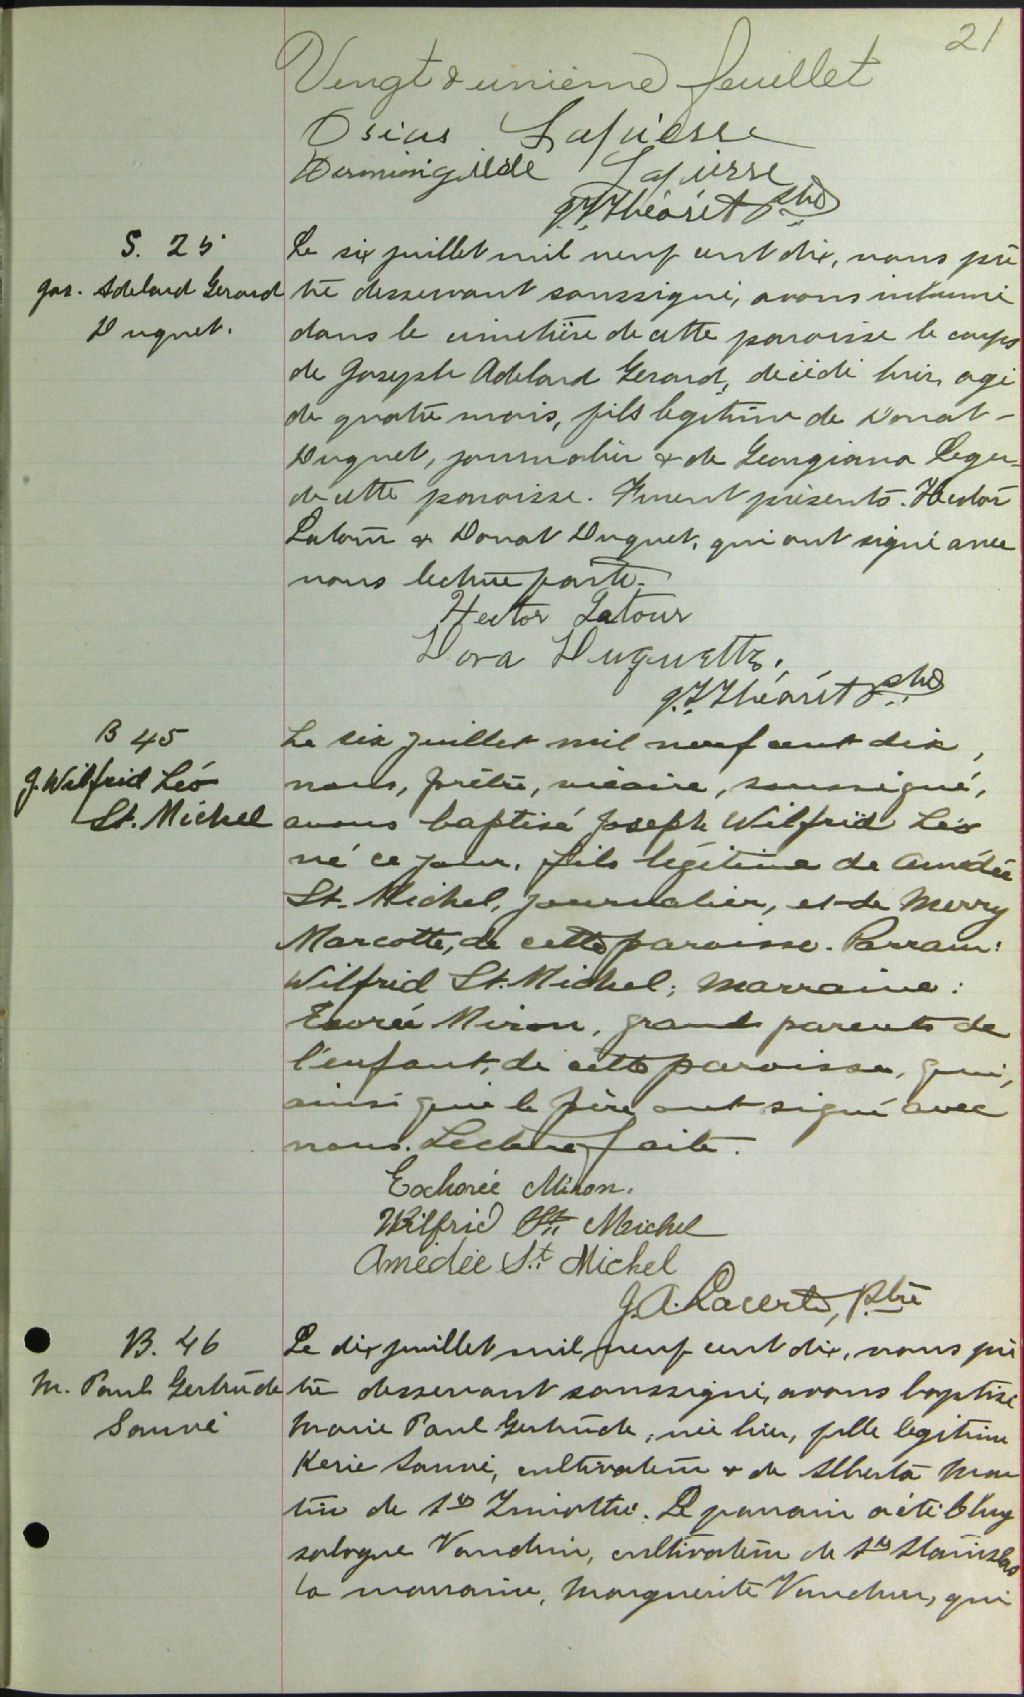 21
Vingt & unième feuillet
Osias Lapierre
Herminigilde Lapierre
J. T. Théorêt ptre
S. 25
Jos. Adelard Gerard
Duquet.
Le six juillet mil neuf cent dix, nous prê
tre desservant soussigné, avons inhumé
dans le cimetière de cette paroisse le corps
de Joseph Adelard Gerard, décédé hier, agé
de quatre mois, fils légitime de Donat
Duquet, journalier & de Georgiana Leger
de cette paroisse. Furent présents. Hector
Latour & Donat Duquet, qui ont signé avec
nous lecture faite.
Hector Latour
Dora Duquette.
J. T. Théorêt ptre
B 45
J. Wilfrid Léo
St. Michel
Le six juillet mil neuf cent dix,
nous, prêtre, vicaire, soussigné,
avons baptisé Joseph Wilfrid Léo
né ce jour, fils légitime de Amédée
St. Michel, journalier, et de Merry
Marcotte, de cette paroisse. Parrain:
Wilfrid St. Michel; marraine:
Exorée Miron, grand parents de
l'enfant, de cette paroisse, qui,
ainsi que le père ont signé avec
nous. Lecture faite.
Exhorée Miron.
Wilfrid St. Michel
Amédée St. Michel
J. A. Lacerte, Ptre
B. 46
M. Paul Gertrude
Sauvé
Le dix juillet mil neuf cent dix, nous prê
tre desservant soussigné, avons baptisé
Marie Paul Gertrude, née hier, fille legitime
Kerie Sauvé, cultivateur & de Alberta Mar
tin de St Timothé. Le parrain a été Chry
sologue Vandrin, cultivateur de St Stanislas
la marraine, Marguerite Vandrin, qui